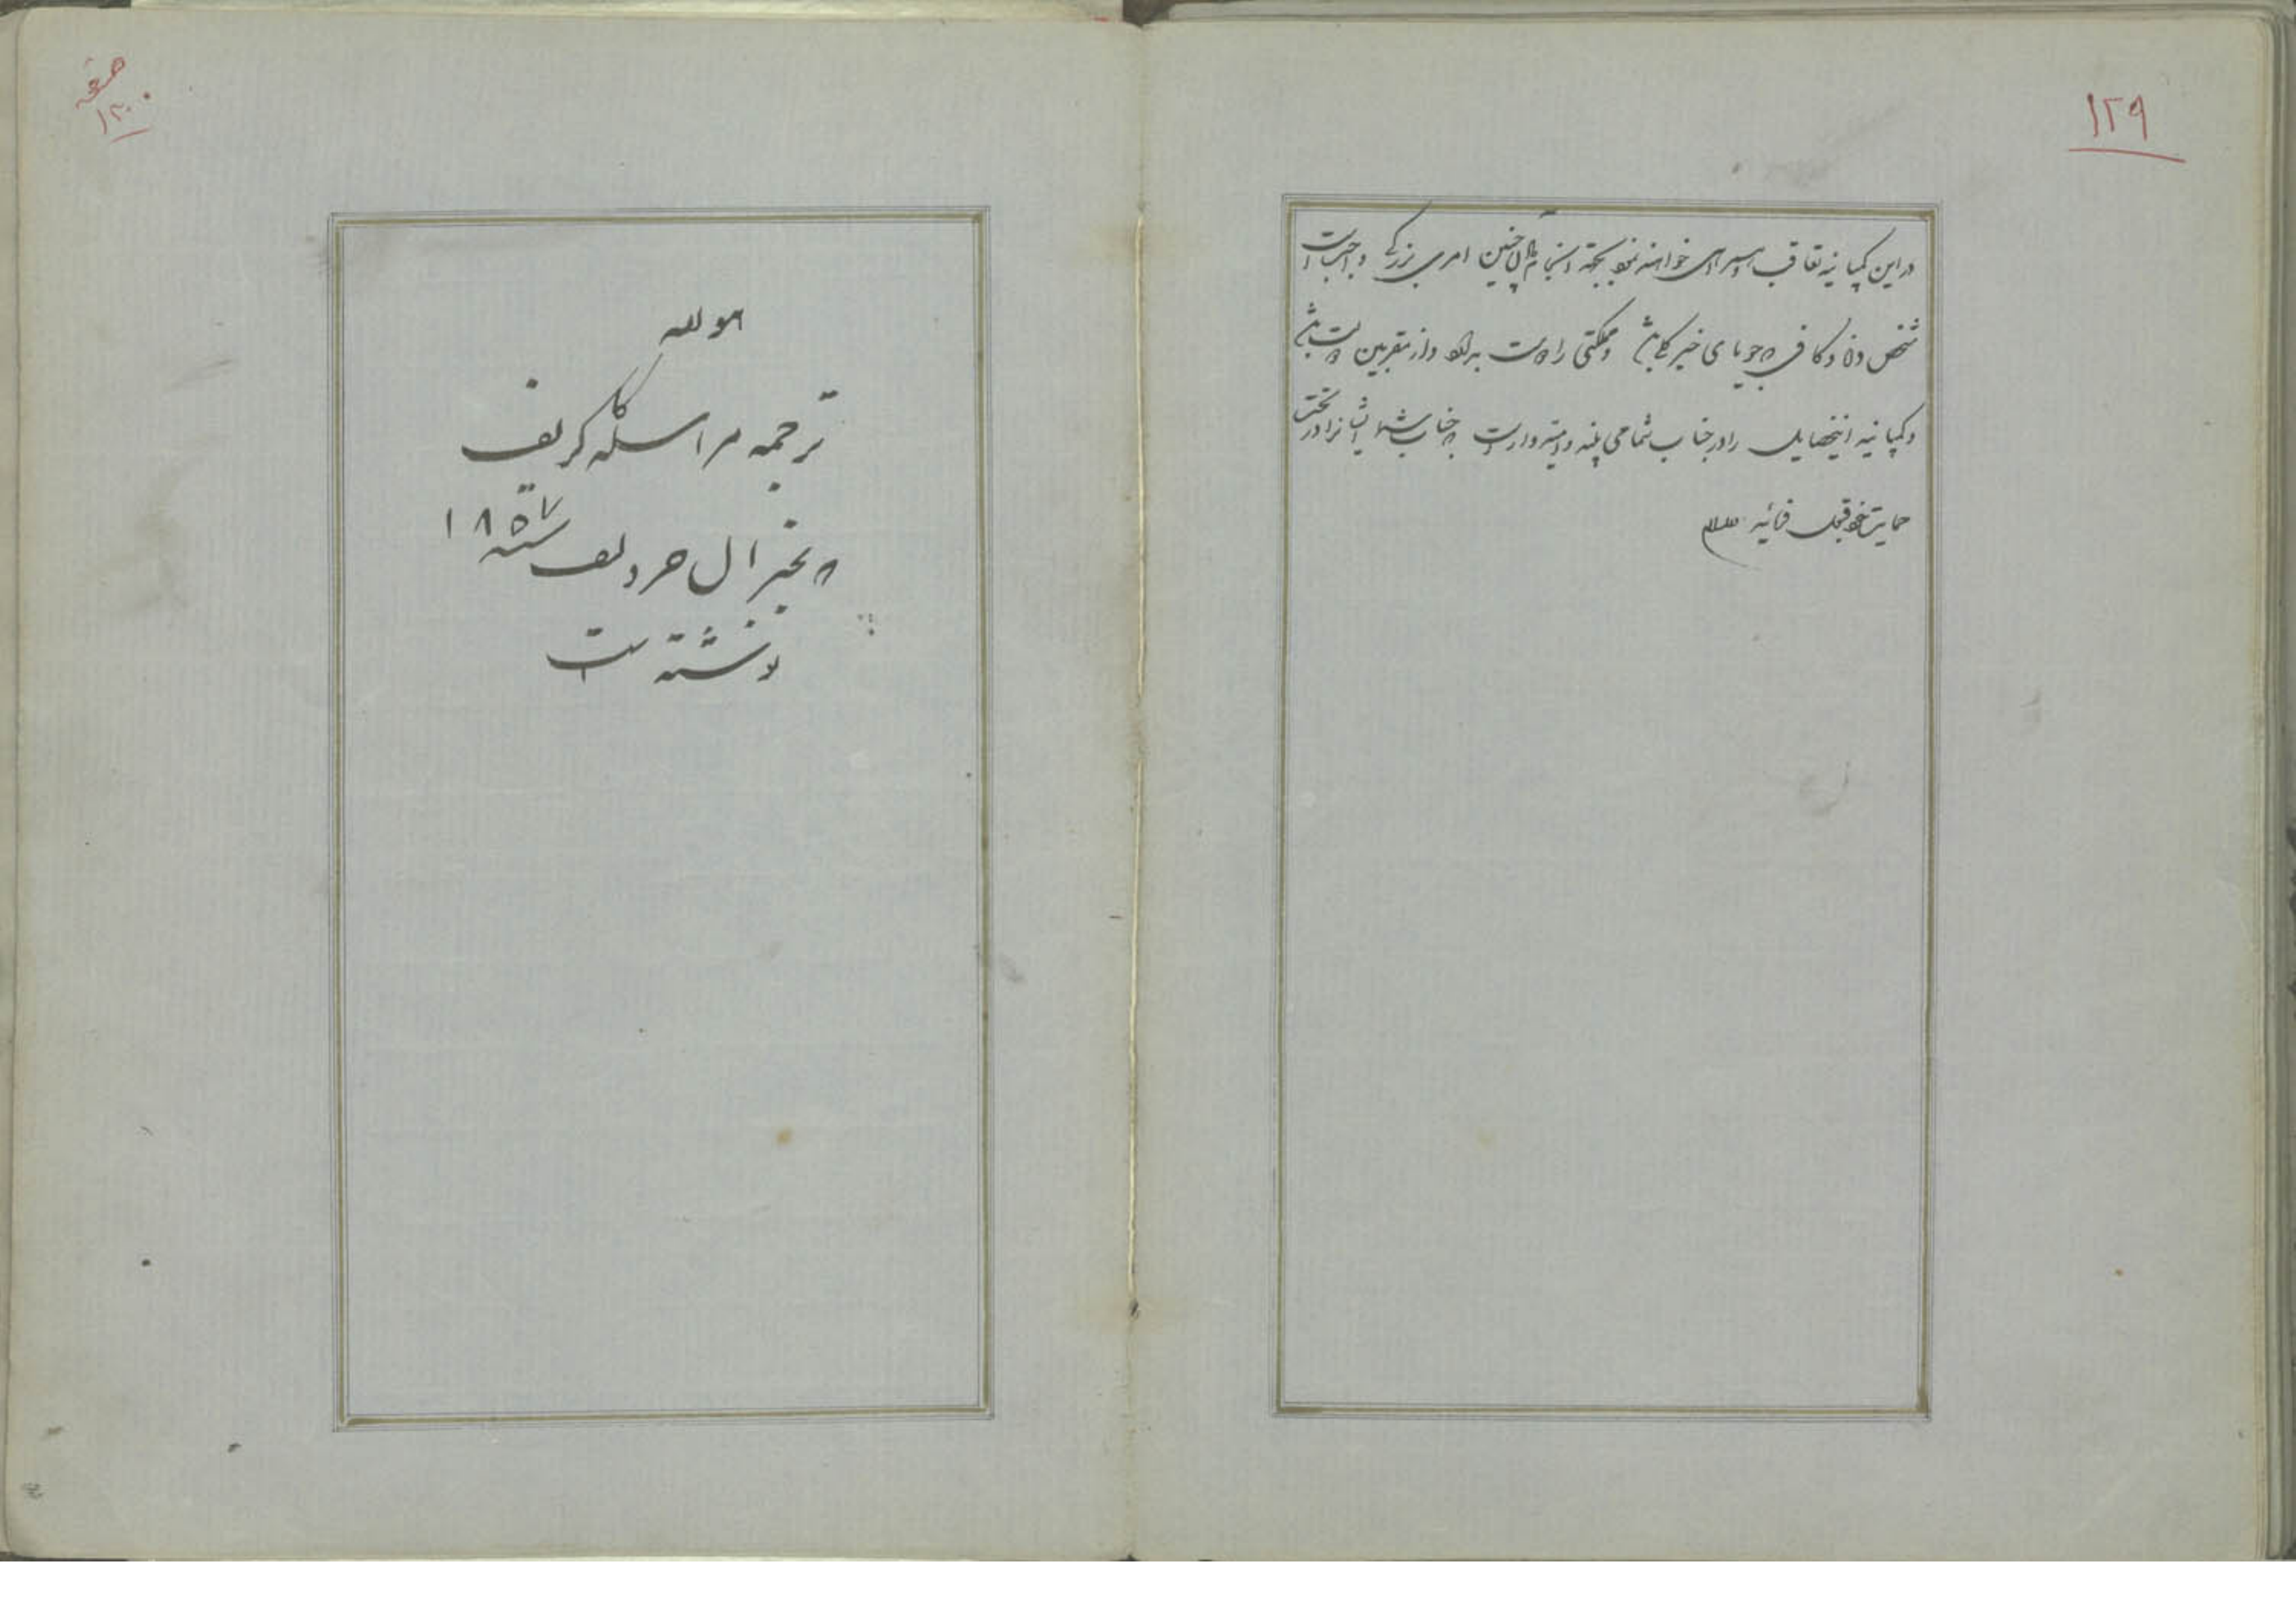 ۱۲۹
در این کمپانیه تعاقب و همراهی خواهند نمود بجهة انجام چنین امر بزرگی واجب است
شخص دانا و کافی که جویای خیر کل باشد و مملکتی را دوست بدارد و از مقربین دولت باشد
و کمپانیه این خصایل را در جناب شما می بیند و امیدوار است که جناب شما ایشان را در تحت
حمایت خود قبول فرمائید والسلام
صفحه
۱۳۰
هو الله
ترجمه مراسله که گریف
به جنرال خرولف سنه ۱۸۵۷
نوشته است